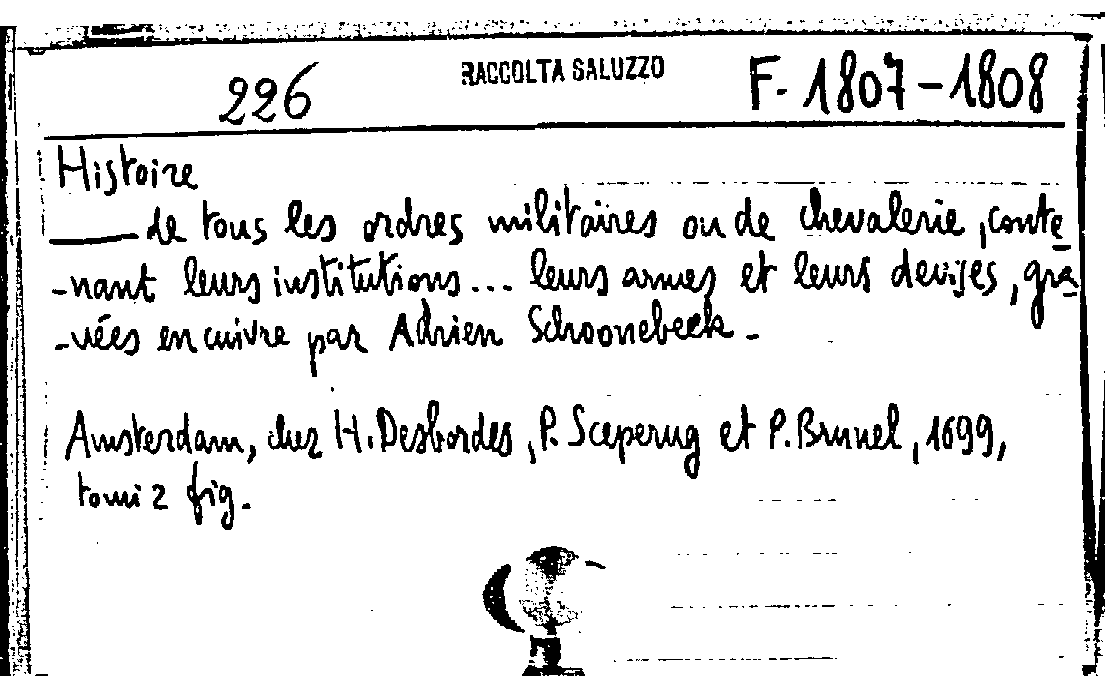 226 RACCOLTA SALUZZO F. 1807-1808
Histoire
—— de tous les ordres militaires ou de chevalerie, conte
-nant leurs institutions... leurs armes et leurs devises, gra
-vées en cuivre par Adrien Schoonebeek -
Amsterdam, chez H. Desbordes, P. Sceperug et P. Brunel, 1699,
tomi 2 fig.